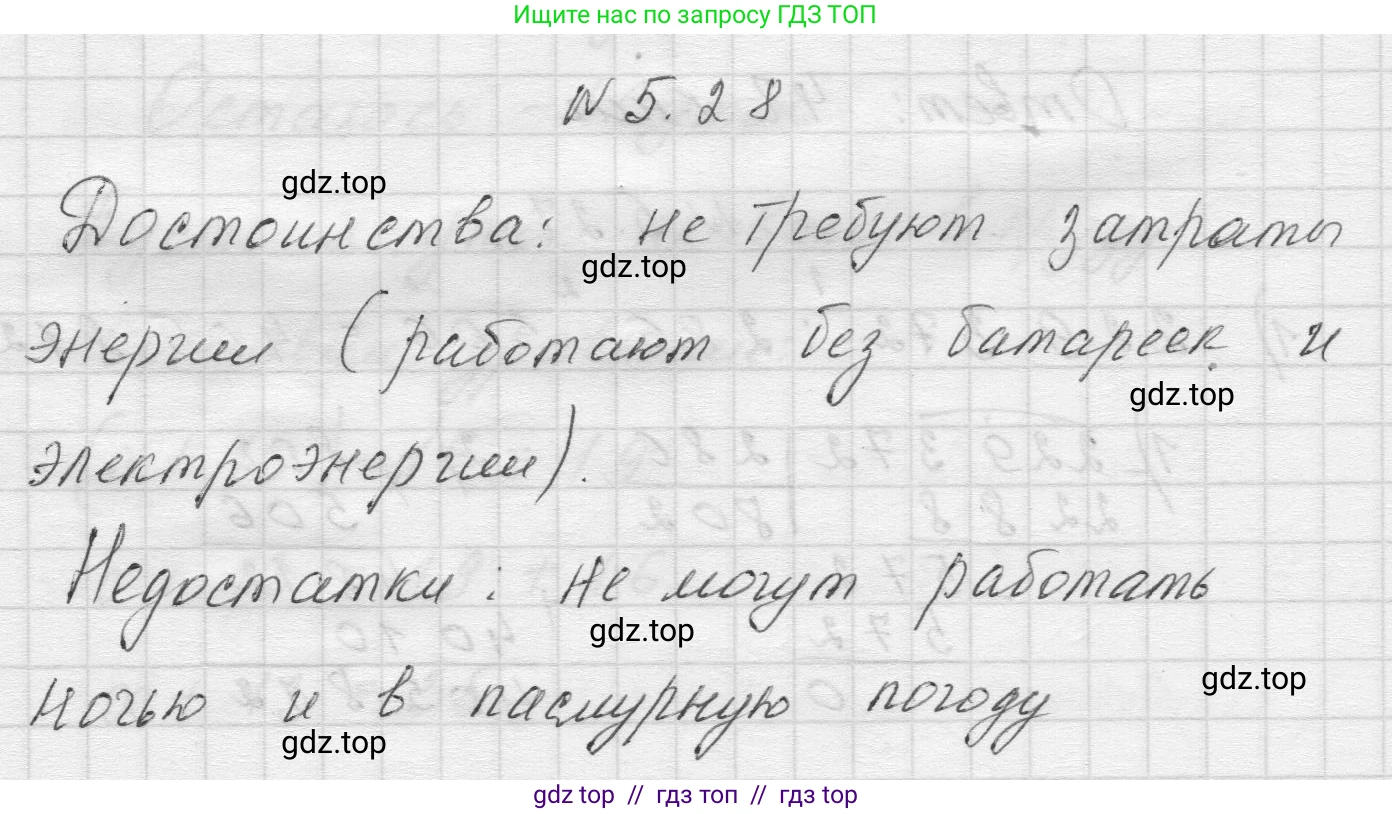 Ищите нас по запросу ГДЗ ТОП
N 5.28
gdz.top
Достоинства: не требуют затраты
gdz.top
энергии (работают без батареек и
gdz.top
электроэнергии).
Недостатки: не могут работать
gdz.top
gdz.top
ночью и в пасмурную погоду
gdz.top
gdz top // гдз топ // гдз top